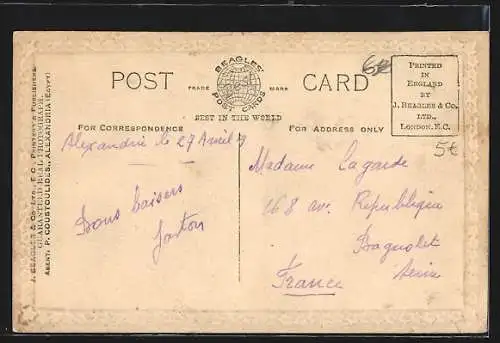 BEAGLES'
POST CARDS
POST CARD
TRADE MARK
BEST IN THE WORLD
FOR CORRESPONDENCE
FOR ADDRESS ONLY
PRINTED
IN
ENGLAND
BY
J. BEAGLES & Co.
LTD.,
LONDON. E.C.
6€
5€
J. BEAGLES & Co., LTD., E.C., PRINTERS & PUBLISHERS.
GUARANTEED REAL PHOTOGRAPH.
AGENT: P. COUSTOULIDES., ALEXANDRIA (EGYPT)
Alexandrie le 27 Avril
Bons baisers
Gaston
Madame Lagarde
168 av. République
Bagnolet
Seine
France